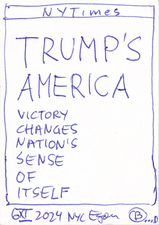 NYTimes
TRUMP'S
AMERICA
VICTORY
CHANGES
NATION'S
SENSE
OF
ITSELF
2024 NYC